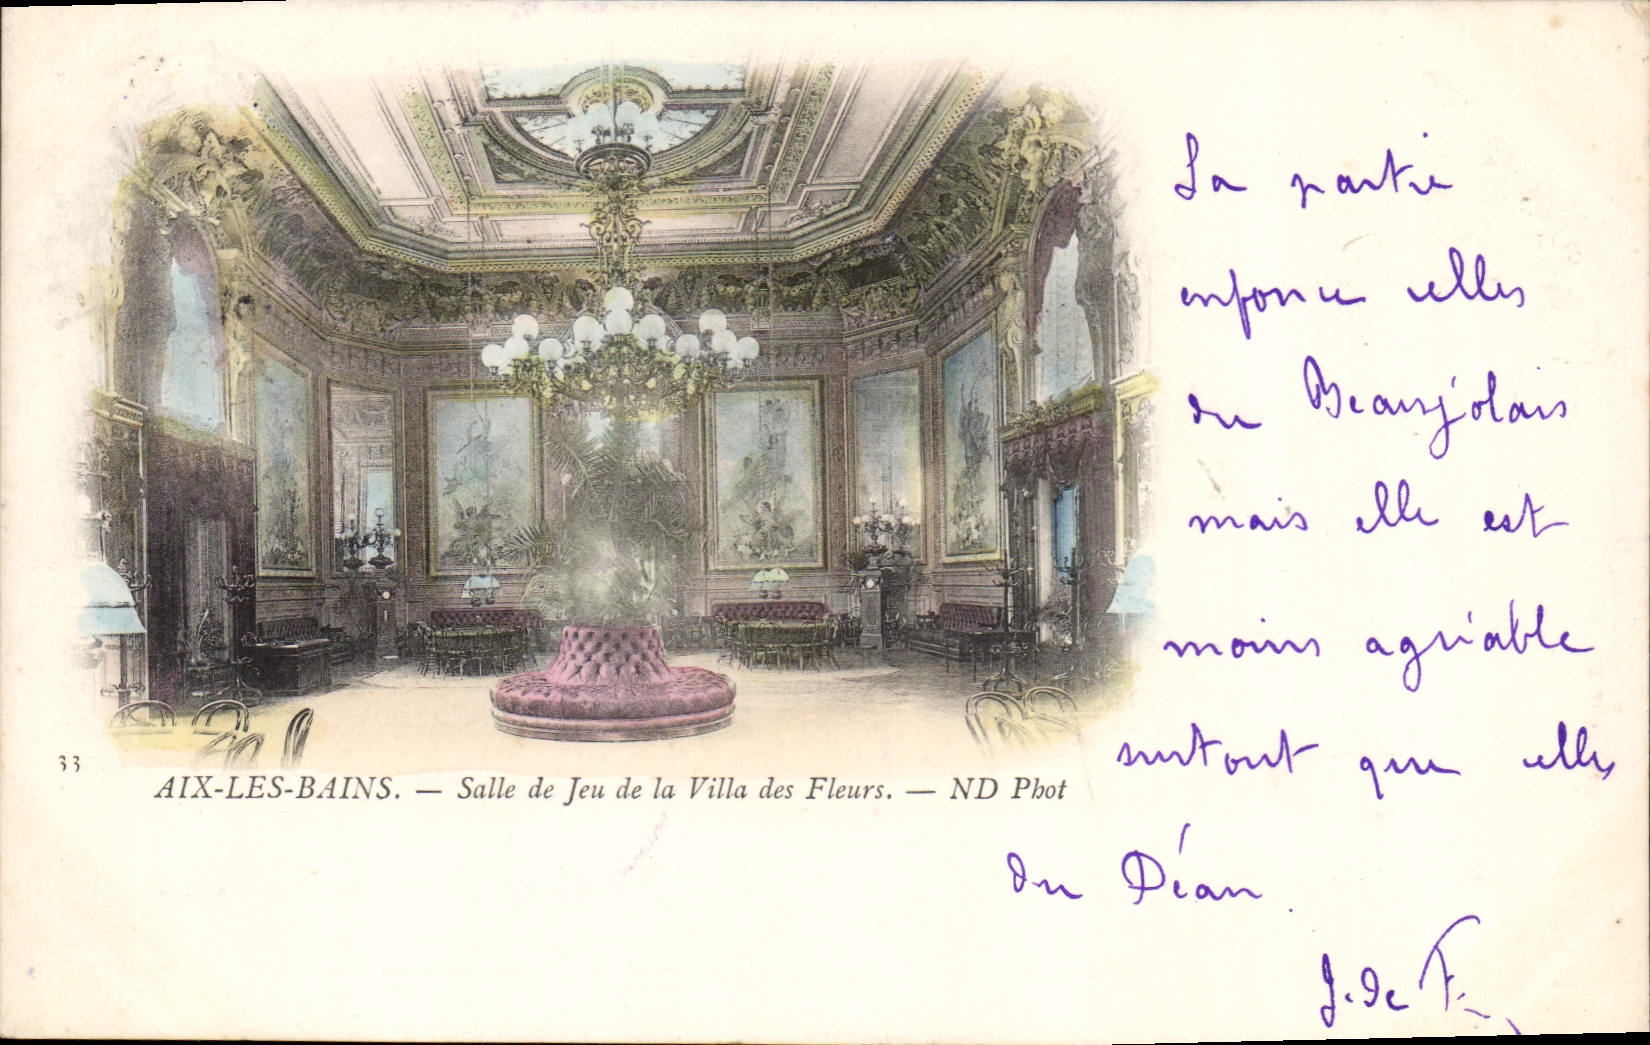 La partie
enfonce celles
du Beaujolais
mais elle est
moins agréable
surtout que celles
du Déan.
J. de F.
33
AIX-LES-BAINS. — Salle de Jeu de la Villa des Fleurs. — ND Phot